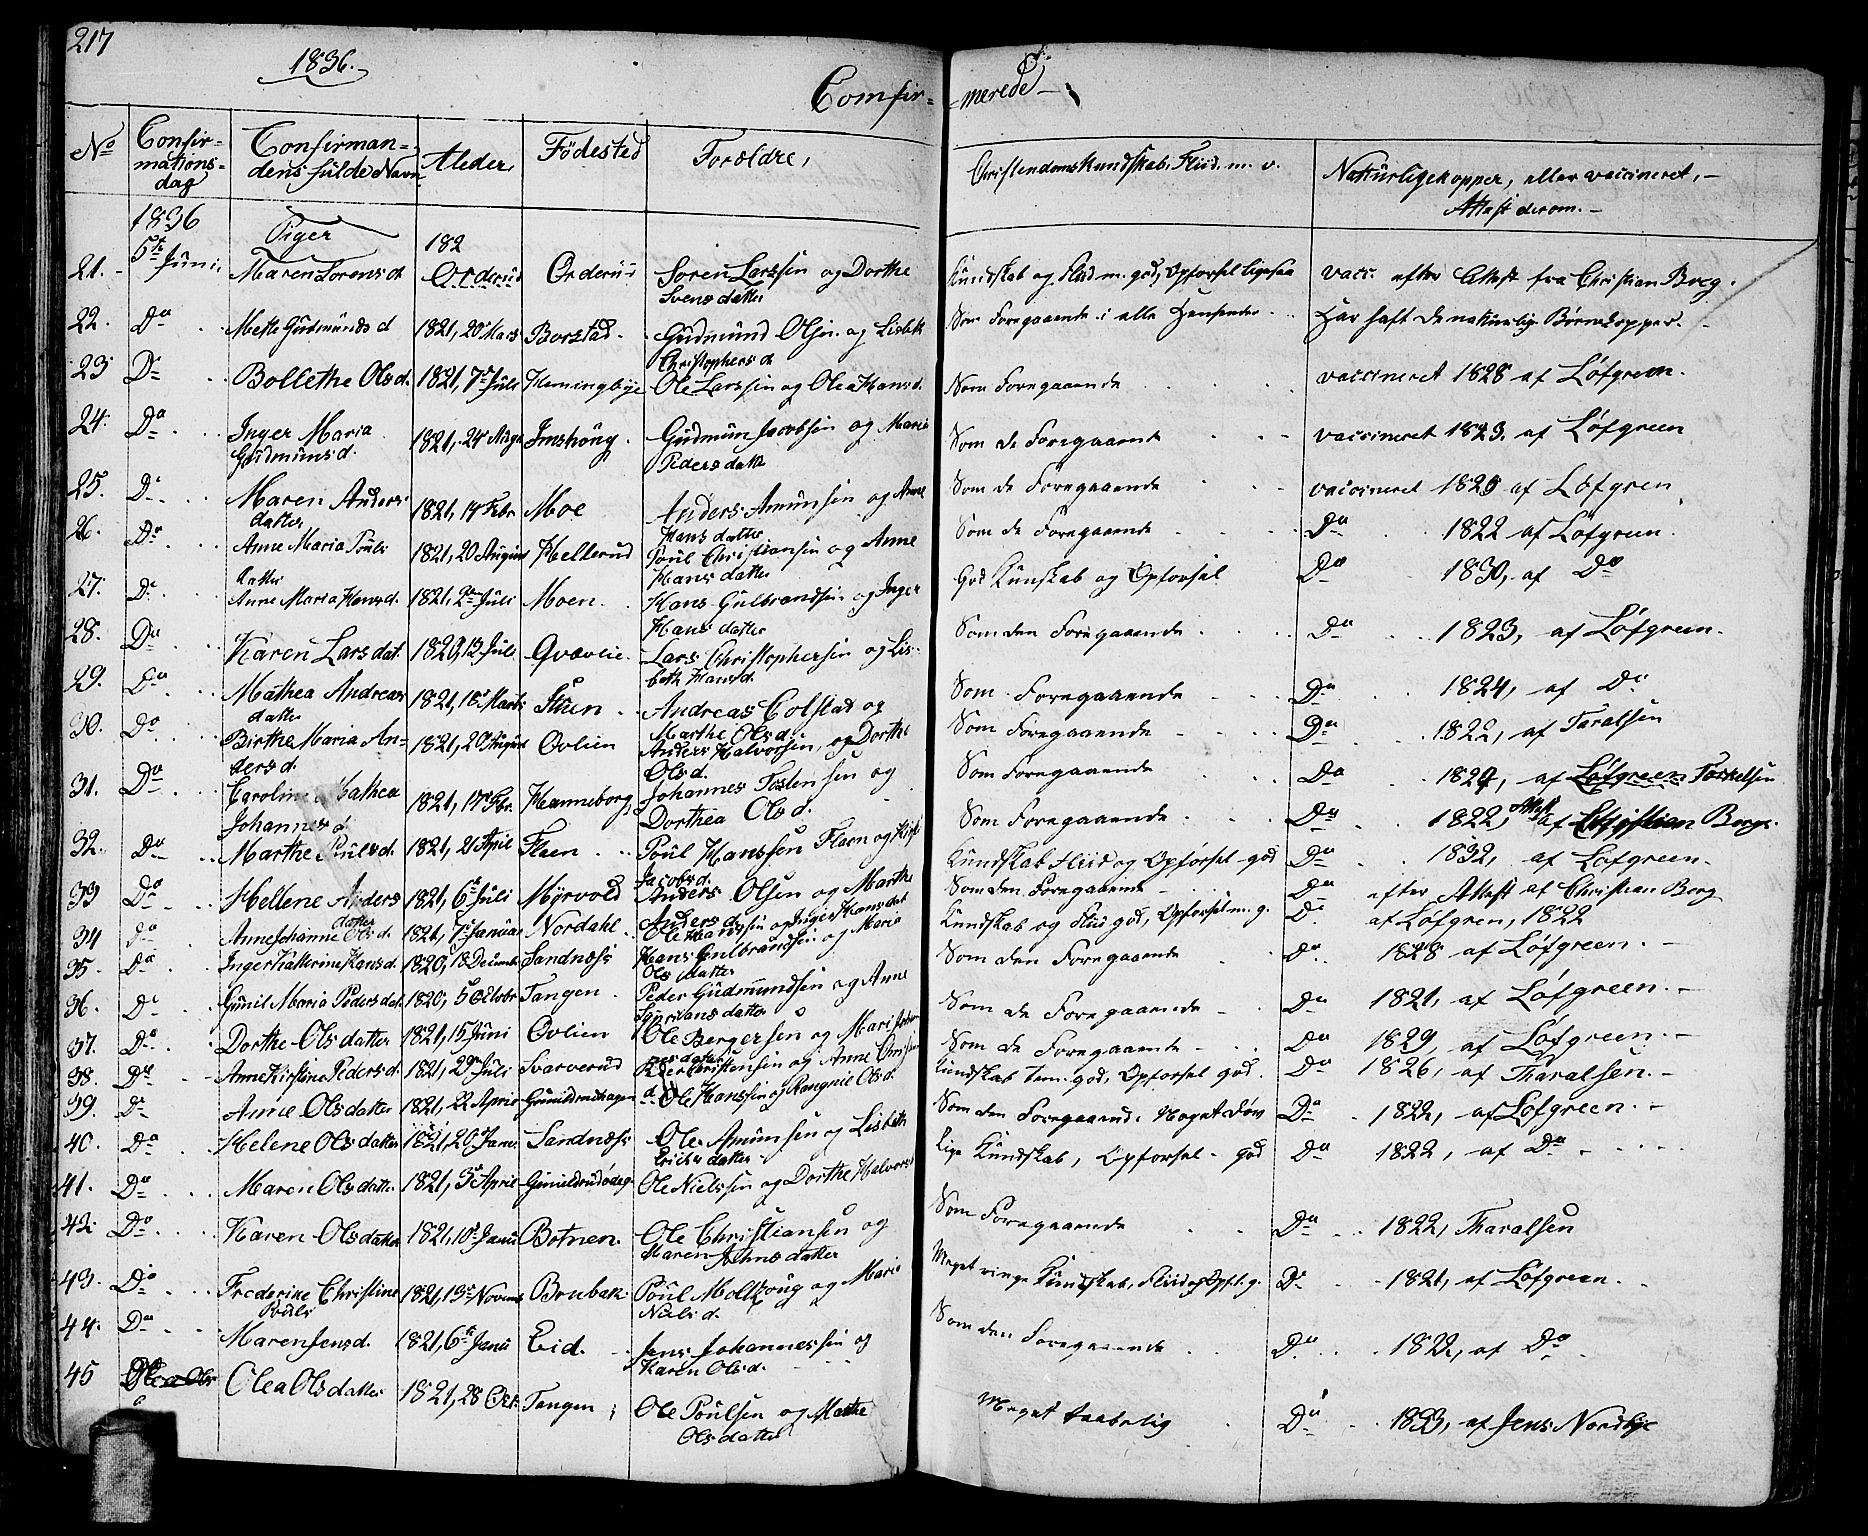 217
1836.
Comfir=
=merede
No
Confir=
mations=
dag
Confirman=
dens fulde Navn
Alder,
Födested
Foræeldre,
Christendoms Kundskab, Fliid. m. v.
Naturligekopper, eller vaccineret, –
Attest derom. –
1836
Piger
182
21. 5te Juni. Maren Sorens d. Orderud Orderud Soren Larssen og Dorthe
Svens datter
Kundskab og Fliid m. god, Opforsel ligesaa vacc. efter Attest fra Christian Borg.
22. Do Mette Gudmunds d 1821, 20 Mars Borstad. Gudmund Olsen. og Lisbeth
Christophers d.
Som Foregaaende i alle Henseender Har haft de naturlige Børnekopper.
23 Do Bollethe Ols d. 1821, 7de Juli Hemingbÿe Ole Larssen og Olea Hans d.
Som Foregaaende vaccineret 1828 af Løfgreen.
24. Do Inger Maria
Gudmuns d. 1821, 24 Augu Imshoug. Gudmun Jacobsen og Maria
Peders datte
Som de Foregaaende vaccineret 1823. af Løfgreen
25. Do Maren Anders
datter 1821, 14 Febr Moe Anders Amunsen og Anne
Hans datter
Som de Foregaaende vaccineret 1825 af Løfgren
26. Do Anne Maria Pouls
datter 1821, 20 August Hellerud Poul Christiansen og Anne
Hans datter
Som de Foregaaende Do 1822 af Løfgreen.
27. Do Anne Maria Hans d. 1821, 2den Juli Moen. Hans Gulbrandsen og Inger
Hans datter
God Kunskab og Opforsel Do 1830, af Do
28. Do Karen Lars dat. 1820, 13 Juli Qvævlie. Lars Christophersen og Lis-
beth Hans d.
Som den Foregaaende Do 1823, af Løfgreen.
29. Do Mathea Andreas
datter 1821, 18 Marts Stuen Andreas Colstad og
Marthe Ols d.
Som Foregaaende Do 1824, af Do
30. Do Birthe Maria An=
ders d. 1821, 20 August Ovlien Anders Halvorsen, og Dorthe
Ols d.
Som Foregaaende Do 1822, af Taralsen
31. Do Caroline Mathea
Johannes d. 1821, 17 Febr. Hanneborg Johannes Tostensen og
Dorthea Ols d.
Som Foregaaende Do 1824, af Løfgreen Torkelsen
32. Do Marthe Pouls d. 1821, 21 April Flaen Poul Hanssen Flaen og Kirst
Jacobs d.
Som Foregaaende Do 1822, Attest af Christian Borg.
33 Do Hellene Anders
datter 1821, 6te Juli Myrvold Anders Olsen og Marthe
Anders d.
Kundskab Fliid og Opførsel god Do 1832, af Løfgreen.
34 Do Anne Johanne Ols d. 1821, 7de Januar Nordahl Ole Hanssen og Inger Hans dat
Som den Foregaaende Do efter Attest af Christian Borg
35. Do Inger Katterine Hans d. 1820, 18 Decembr Sandnæss Hans Gulbrandsen og Maria
Ols datter
Kundskab og Fliid god, Opforsel m. g. Do af Løfgren, 1822
36. Do Gunil Maria Peders dat. 1820, 5 Octobr Tangen. Peder Gudmundsen og Anne
Som den Foregaaende Do 1828 af Løfgreen. –
37. Do Dorthe Ols datter 1821, 15 Juni Ovlien Ole Bergersen og Mari
Som de Foregaaende Do 1821, af Løfgreen. –
38. Do Anne Kirstine Peders d. 1821, 29 Juli Svarverud Peder Christensen og Anne
Som de Foregaaende Do 1829, af Løfgreen. –
39. Do Anne Ols datter 1821, 22 April Ole Hanssen og Rangnil Ols d.
Kundskab tem. god, Opforsel god. Do 1826, af Tharalsen. –
40. Do Helene Ols datter 1821, 20 Janu. Sandnæss Ole Amunsen og Lisbeth
Erichs datter
Som den Foregaaende. Noget døv Do 1822, af Løfgreen. –
41. Do Maren Ols datter 1821, 3 April Ole Nielssen og Dorthe Halvors
Lige Kundskab, Opforsel god Do 1822, af Do
42. Do Karen Ols datter 1821, 10de Janu Botnen. Ole Christiansen og
Maren datter
Som Foregaaende Do 1822, Tharalsen
43. Do Frederike Christine
Pouls 1821, 13 Novemb Brubak. Poul Moltzoug og Maria
Niels d.
Meget ringe Kundskab, Fliid og Opf. t. g. Do 1821, af Løfgreen.
44. Do Maren Jens d. 1821, 6te Janu Eid. Jens Johannessen og
Karen Ols d.
Som den Foregaaende Do 1822, af Do
45 Olea Ols datter 1821, 28 Oct. Tangen Ole Poulsen og Marthe
Ols datter
Meget taabelig Do 1833, af Jens Nordbye